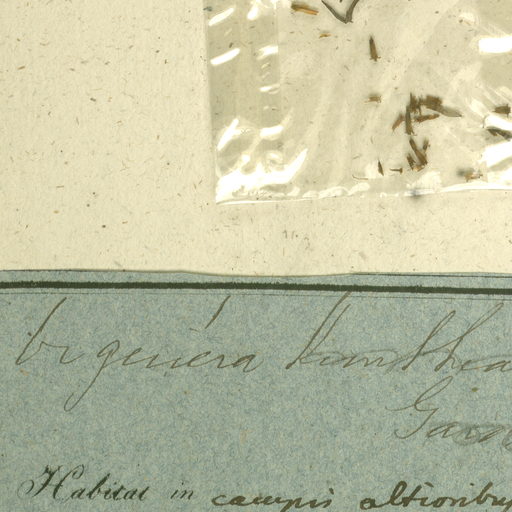 Vigenéra Kunthea
Gard
Habitat in campis altioribus